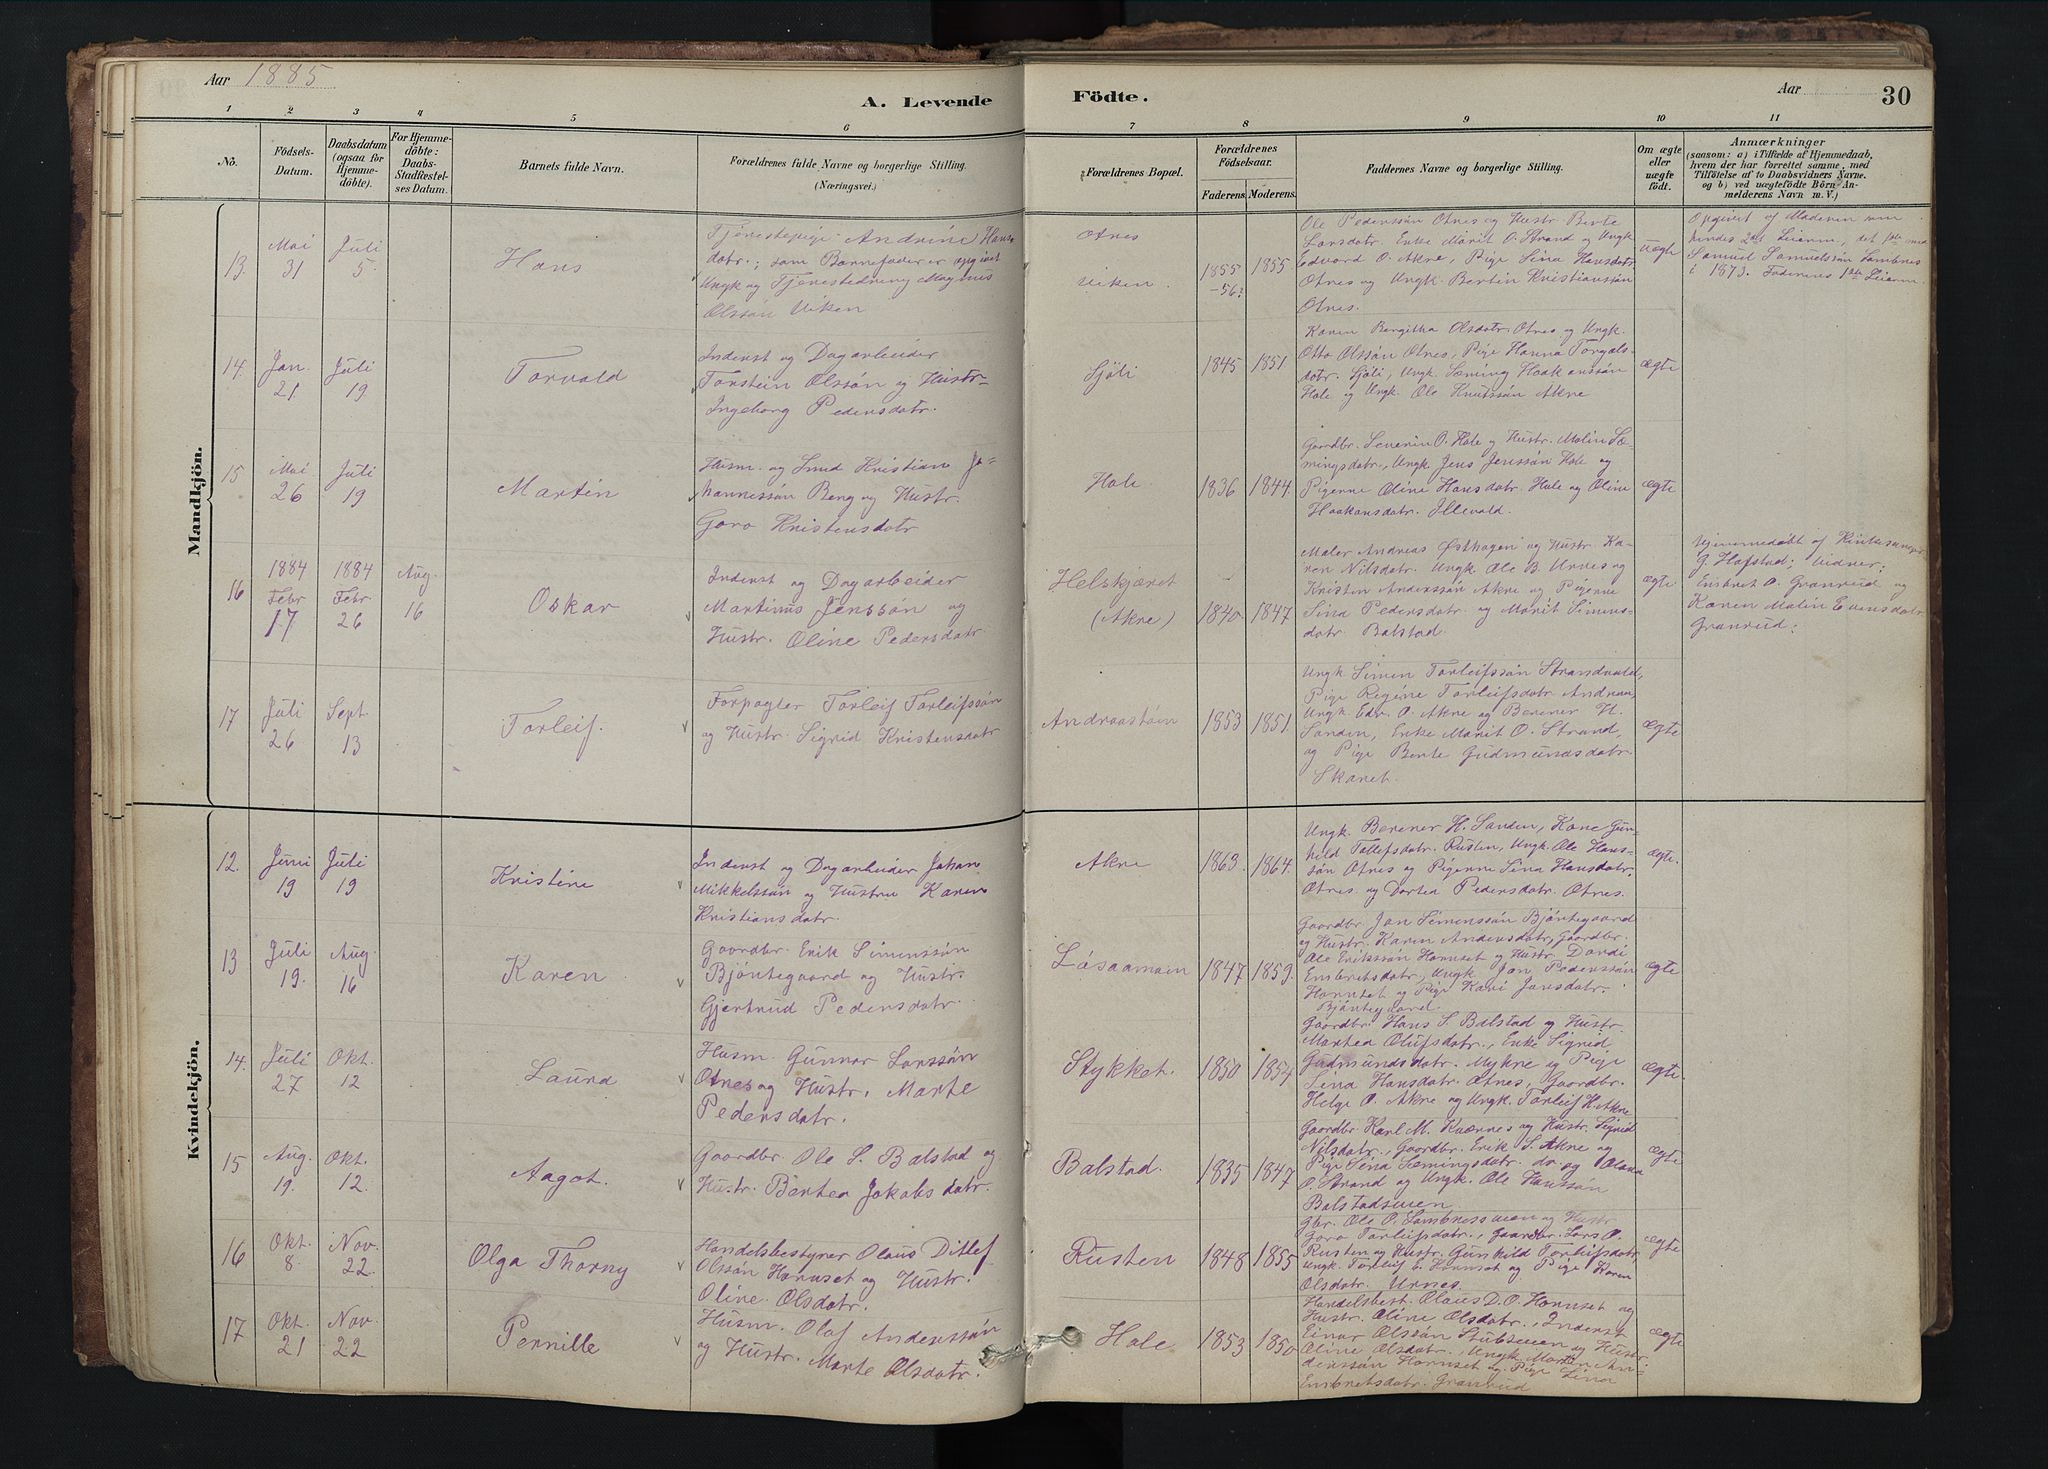 Aar 1885
A. Levende Födte.
Aar
30
1 2 3 4 5 6 7 8 9 10 11
No.
Födsels-
Datum.
Daabsdatum
(ogsaa for
Hjemme-
döbte).
For Hjemme-
döbte:
Daabs-
Stadfæstel-
ses Datum.
Barnets fulde Navn.
Forældrenes fulde Navne og borgerlige Stilling.
(Næringsvei.)
Forældrenes Bopæl.
Forældrenes
Födselsaar.
Faderens. Moderens.
Faddernes Navne og borgerlige Stilling.
Om ægte
eller
uægte
födt.
Anmærkninger
(saasom: a) i Tilfælde af Hjemmedaab,
hvem der har forrettet samme, med
Tilföielse af to Daabsvidners Navne.
og b) ved uægtefödte Börn An-
melderens Navn m. V.)
Mandkjön.
13. Mai 31 Juli 5. Hans
Tjenestepige Andrine Hans-
datr.; som Barnefader er opgivet
Ungk og Tjenestedreng Magnus
Olssön Viken
Otnes
Viken.
1855 -56? 1855
Ole Pederssön Otnes og Hustr. Berte
Larsdatr. Enke Marit O. Strand og Ungk
Edvard O. Akre, Pige Sina Hansdatr.
Otnes og Ungk. Bertin Kristianssön
Otnes.
uægte
Opgivet af Moderen som
hendes 2det Leierm., det 1ste med
Samuel Samuelssön Lombnes
i 1873. Faderens 1ste Leierm.
14. Jan. 21 Juli 19 Torvald
Inderst og Dagarbeider
Torstein Olssön og Hustr.
Ingeborg Pedersdatr.
Sjöli 1845 1851
Karen Bergitha Olsdatr. Otnes og Ungk.
Otto Olssön Otnes, Pige Hanna Torgals-
datr. Sjöli, Ungk. Sæming Haakonssön
Hole og Ungk. Ole Knutssön Akre
ægte
15 Mai 26 Juli 19 Martin
Husm. og Smed Kristian Jo-
hannessön Berg og Hustr.
Goro Kristensdatr
Hole 1836 1844.
Gaardbr. Severin O. Hole og Hustr. Malin Sæ-
mingsdatr., Ungk. Jens Jenssön Hole og
Pigerne Oline Hansdatr. Hole og Oline
Haakonsdatr. Illevold.
ægte
16 1884 Febr 17 1884 Febr 26 Aug. 16 Oskar
Inderst og Dagarbeider
Martinus Jenssön og
Hustr. Oline Pedersdatr.
Helskjæret
(Akre) 1840 1847
Maler Andreas Østhagen og Hustr. Ka-
ren Nilsdatr. Ungk. Ole B. Urnes og
Kristen Anderssön Akre og Pigerne
Sina Pedersdatr. og Marit Simens-
datr. Balstad.
ægte
Hjemmedöbt af Kirkesanger
G. Hafstad; Vidner:
Embret O. Granrud og
Karen Malin Evensdatr
Granrud:
17 Juli 26 Sept. 13 Torleif.
Forpagter Torleif Torleifssön
og Hustr. Sigrid Kristensdatr
Andraastöin 1853 1851.
Ungk Simen Torleifssön Strandvold,
Pige Regine Torleifsdatr. Andraa,
Ungk Edv. O. Akre og Berener H.
Sanden, Enke Marit O. Strand,
og Pige Berte Gudmundsdatr.
Skaret.
ægte
Kvindekjön.
12. Juni 19 Juli 19 Kristine
Inderst og Dagarbeider Johan
Mikkelssön og Hustru Karen
Kristiansdatr.
Akre 1863 1864.
Ungk. Berener H. Sanden, Kone Gun-
hild Tollefsdatr. Rusten, Ungk. Ole Hans-
sön Otnes og Pigerne Sina Hansdatr.
Otnes og Dortea Pedersdatr. Otnes.
ægte.
13 Juli 19. Aug. 16 Karen
Gaardbr. Erik Simenssön
Bjöntegaard og Hustr.
Gjertrud Pedersdatr.
Lösaamoen 1847 1859.
Gaardbr Jon Simenssön Bjöntegaard
og Hustr. Karen Andersdatr, Gaardbr.
Ole Erikssön Hornset og Hustr. Dordi
Embretsdatr, Ungk Jon Pederssön
Hornset og Pige Kari Jonsdatr.
Bjöntegaard.
ægte
14. Juli 27 Okt. 12 Laura
Husm. Gunnar Larssön
Otnes og Hustr. Marte
Pedersdatr.
Stykket. 1850 1854
Gaardbr. Hans S. Balstad og Hustr.
Martea Olufsdatr., Enke Sigrid
Gudmundsdatr. Mykne og Pige
Sina Hansdatr. Otnes, Gaardbr.
Helge O. Akre og Ungk. Torleif H. Akre
ægte.
15 Aug. 19. Okt. 12. Aagot.
Gaardbr Ole S. Balstad og
Hustr. Bertea Jakobsdatr.
Balstad. 1835 1847
Gaardbr Karl M. Kværnes og Hustr. Sigrid
Nilsdatr. Gaardbr. Erik S. Akre og
Pige Sina Sæmingsdatr. do og Olava
O. Strand og Ungk. Ole Hanssön
Balstadmoen
ægte
16 Okt. 8. Nov. 22. Olga Thorny
Handelsbestyrer Olaus Ditlef
Olssön Hornset og Hustr.
Oline Olsdatr.
Rusten 1848 1855
Gbr. Ole O. Lombnesmoen og Hustr
Goro Torleifsdatr., Gaardbr. Lars O.
Rusten og Hustr. Gunhild Torleifsdatr,
Ungk. Torleif E. Hornset og Pige Karen
Olsdatr. Urnes.
ægte
17 Okt. 21 Nov. 22 Pernille
Husm. Olaf Anderssön
og Hustr. Marte Olsdatr.
Hole 1853 1850
Handelsbest. Olaus D. O. Hornset og
Hustr. Oline Olsdatr., Inderst
Einar Olssön Stubmoen og Hustr.
Oline Olsdatr., Ungk Morten An-
derssön Hornset og Pige Lina
Embretsdatr. Granrud
ægte